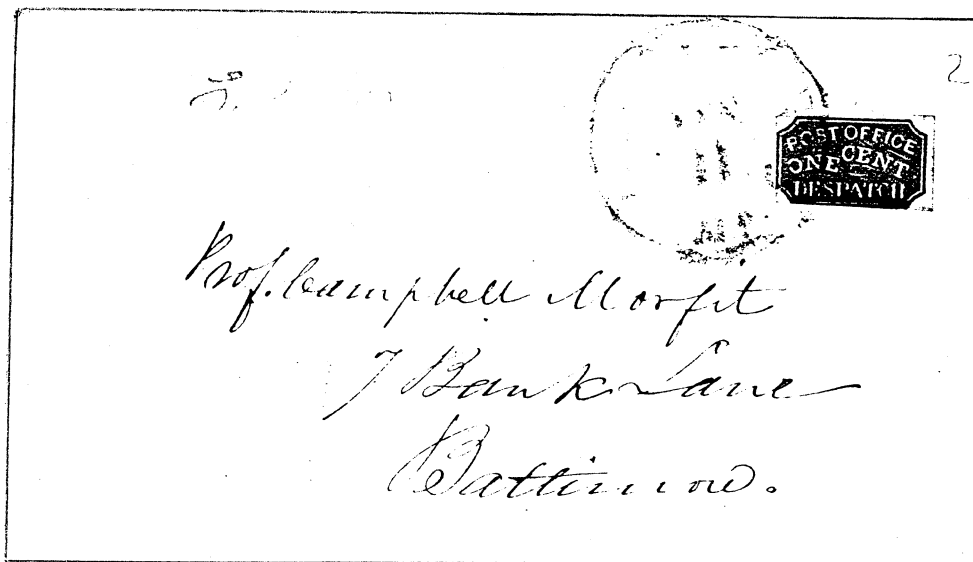 2
POST OFFICE
ONE CENT
DESPATCH
Prof. Campbell Morfit
7 Bank Lane
Baltimore.